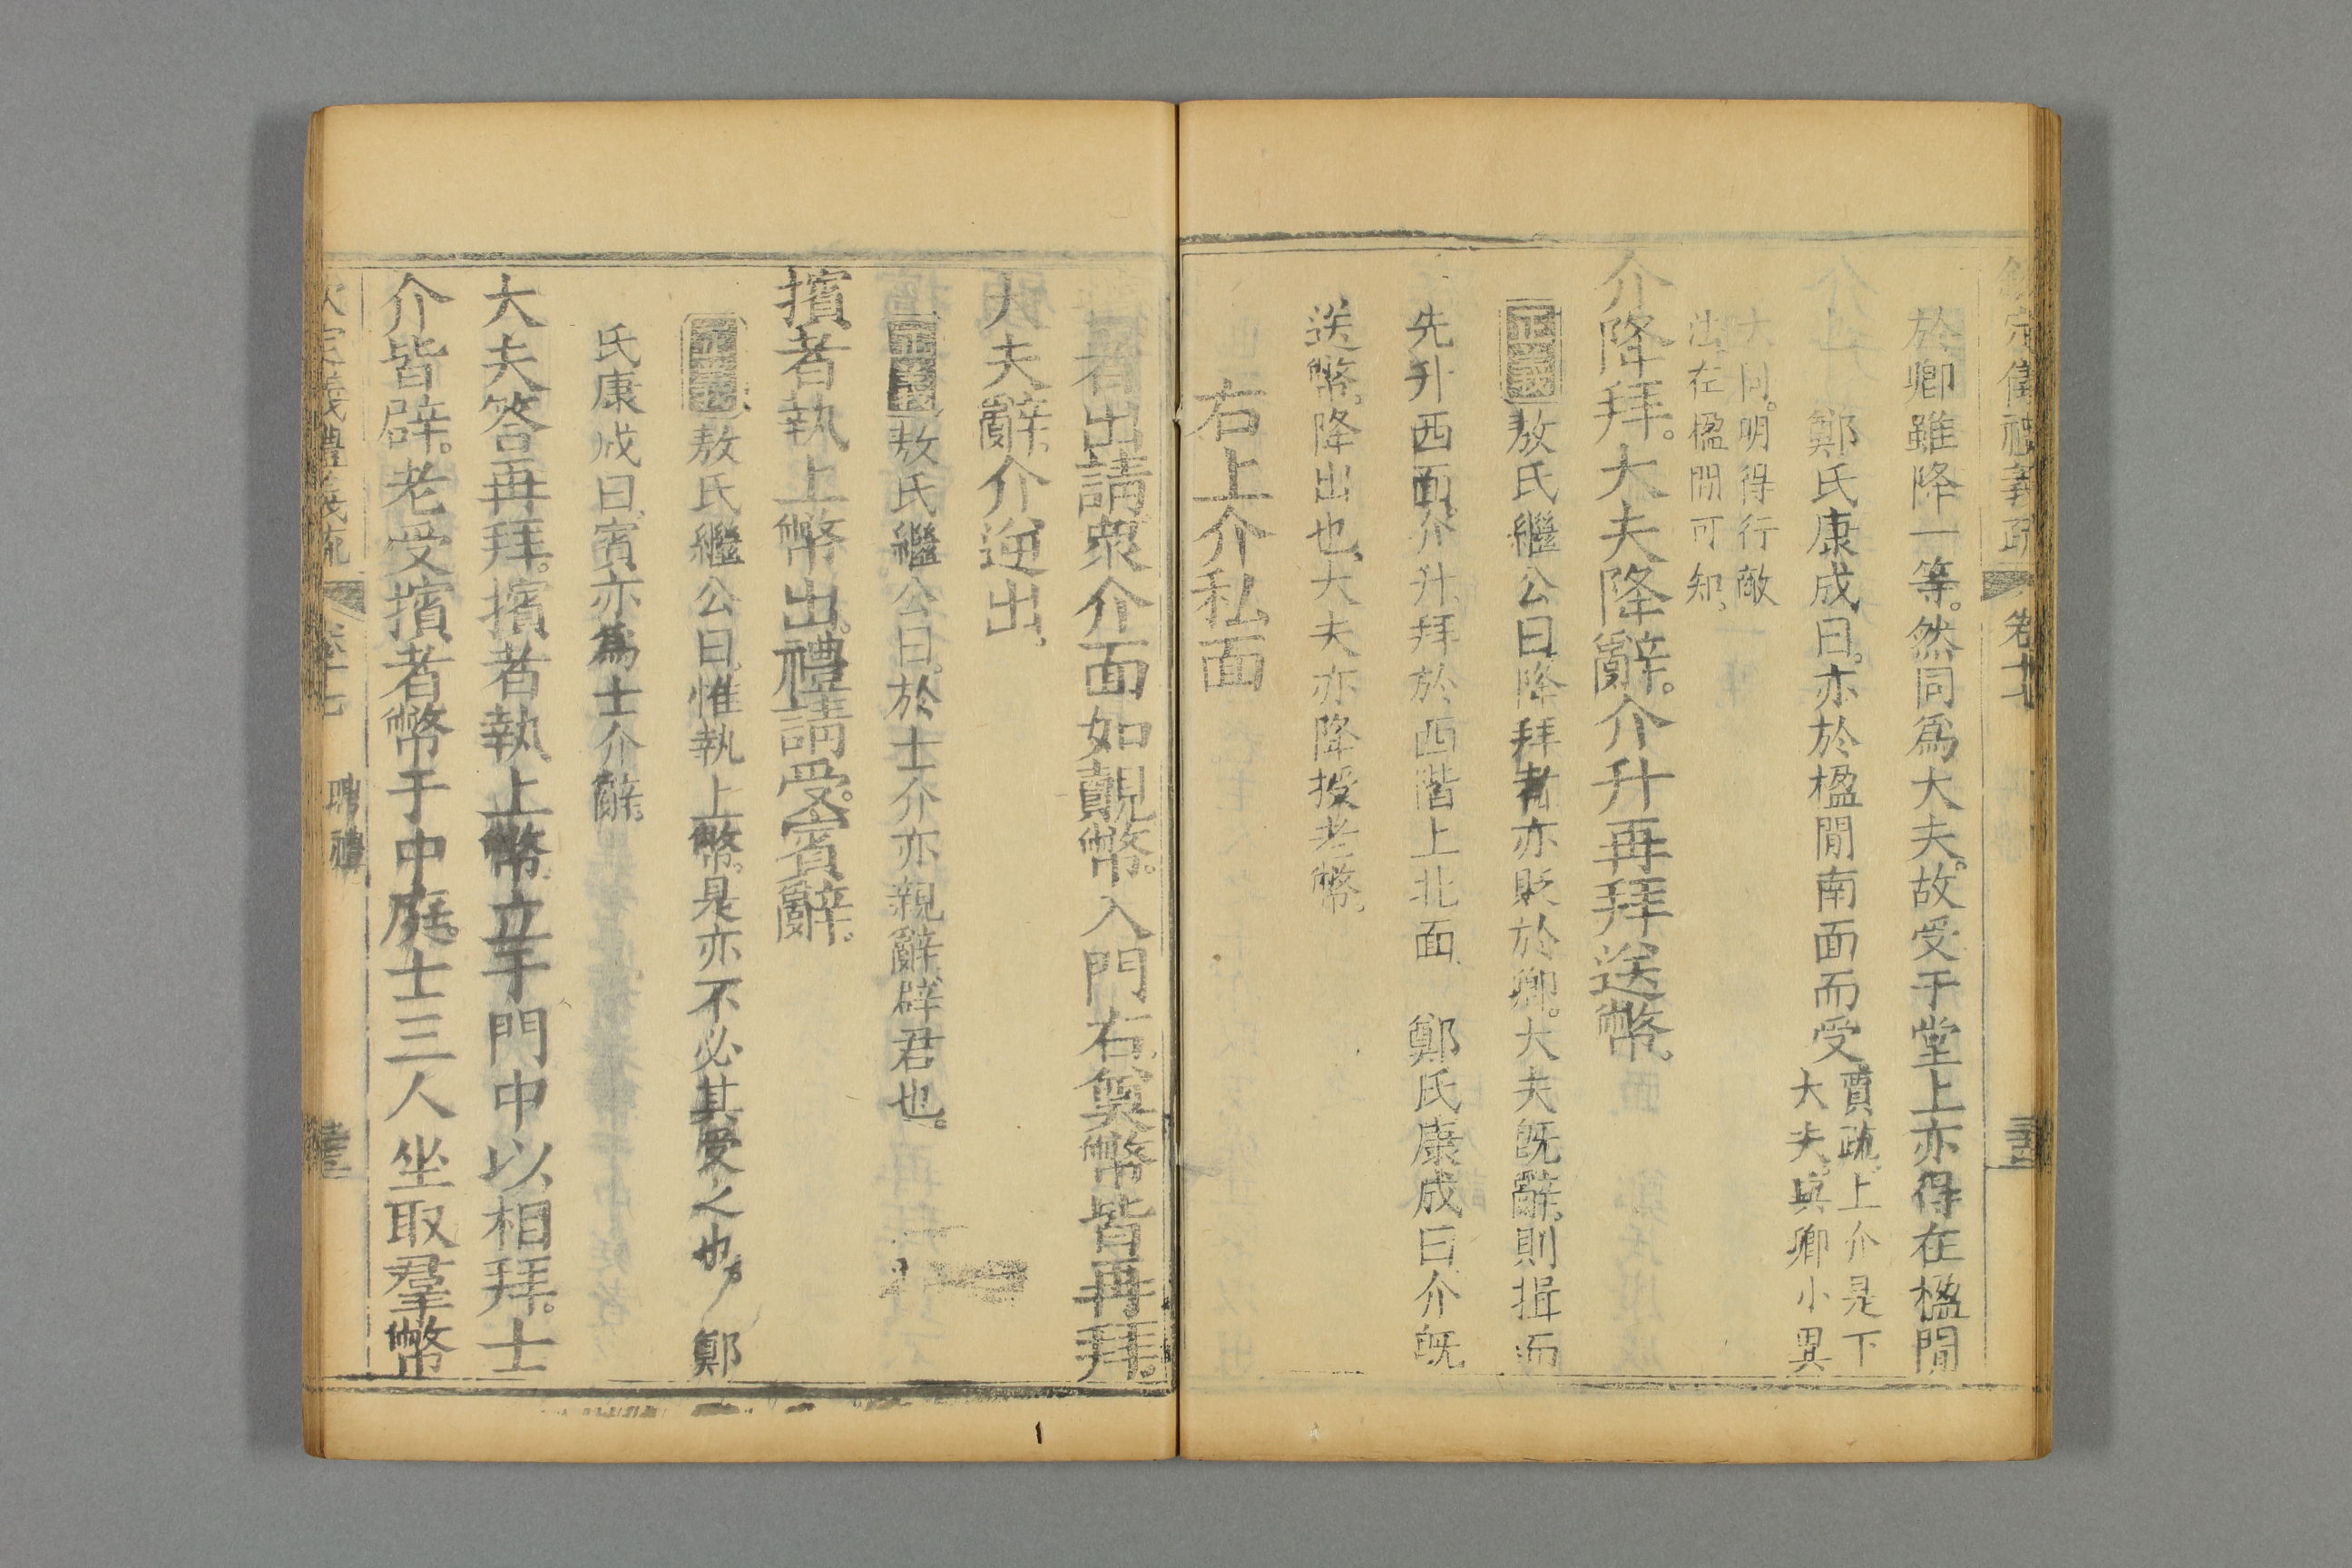 於卿雖降一等。然同爲大夫。故受于堂上亦得在楹閒
鄭氏康成曰。亦於楹閒南面而受
賈疏。上介是下
大夫。與卿小異
大同。明得行敵
法在楹閒可知、
介降拜。大夫降辭。介升再拜送幣。
正義敖氏繼公曰降拜者亦貶於卿。大夫旣辭。則揖而
先升西面。介升、拜於西階上北面、　鄭氏康成曰、介旣
送幣、降出也、大夫亦降授老幣、
右上介私面
擯者出請衆介面如覿幣。入門右、奠幣皆再拜。
大夫辭、介逆出、
正義敖氏繼公曰。於士介亦親辭、辟君也。
擯者執上幣出。禮請受。賓辭。
正義敖氏繼公曰、惟執上幣。是亦不必其受之也　鄭
氏康成曰。賓亦爲士介辭。
大夫答再拜。擯者執上幣、立于門中以相拜。士
介皆辟。老受擯者幣于中庭。士三人坐取羣幣
欽定儀禮義疏　卷十七　聘禮